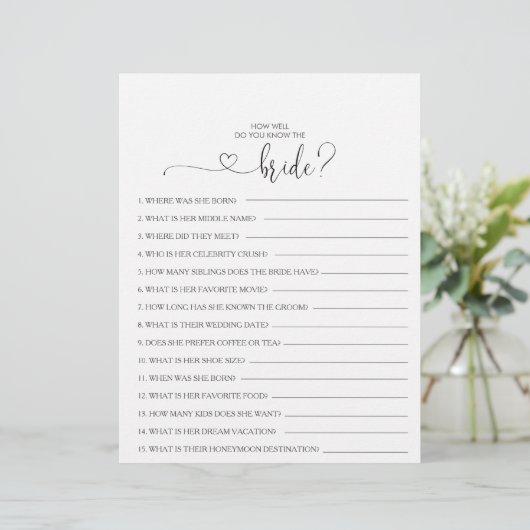 HOW WELL
DO YOU KNOW THE
bride?
1. WHERE WAS SHE BORN?
2. WHAT IS HER MIDDLE NAME?
3. WHERE DID THEY MEET?
4. WHO IS HER CELEBRITY CRUSH?
5. HOW MANY SIBLINGS DOES THE BRIDE HAVE?
6. WHAT IS HER FAVORITE MOVIE?
7. HOW LONG HAS SHE KNOWN THE GROOM?
8. WHAT IS THEIR WEDDING DATE?
9. DOES SHE PREFER COFFEE OR TEA?
10. WHAT IS HER SHOE SIZE?
11. WHEN WAS SHE BORN?
12. WHAT IS HER FAVORITE FOOD?
13. HOW MANY KIDS DOES SHE WANT?
14. WHAT IS HER DREAM VACATION?
15. WHAT IS THEIR HONEYMOON DESTINATION?